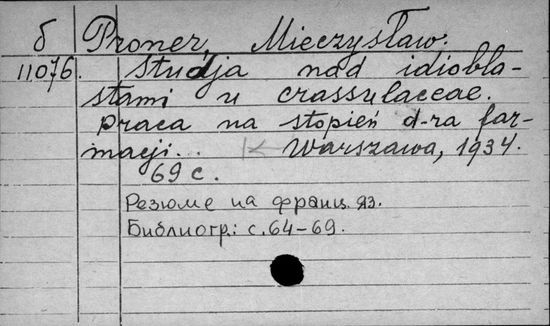 б Proner, Mieczysław.
11076. Studja nad idiobla-
stami u crassulaceae.
Praca na stopień d-ra far-
macji... Warszawa, 1934.
69 с.
Резюме на франц. яз.
Библиогр.: с. 64-69.